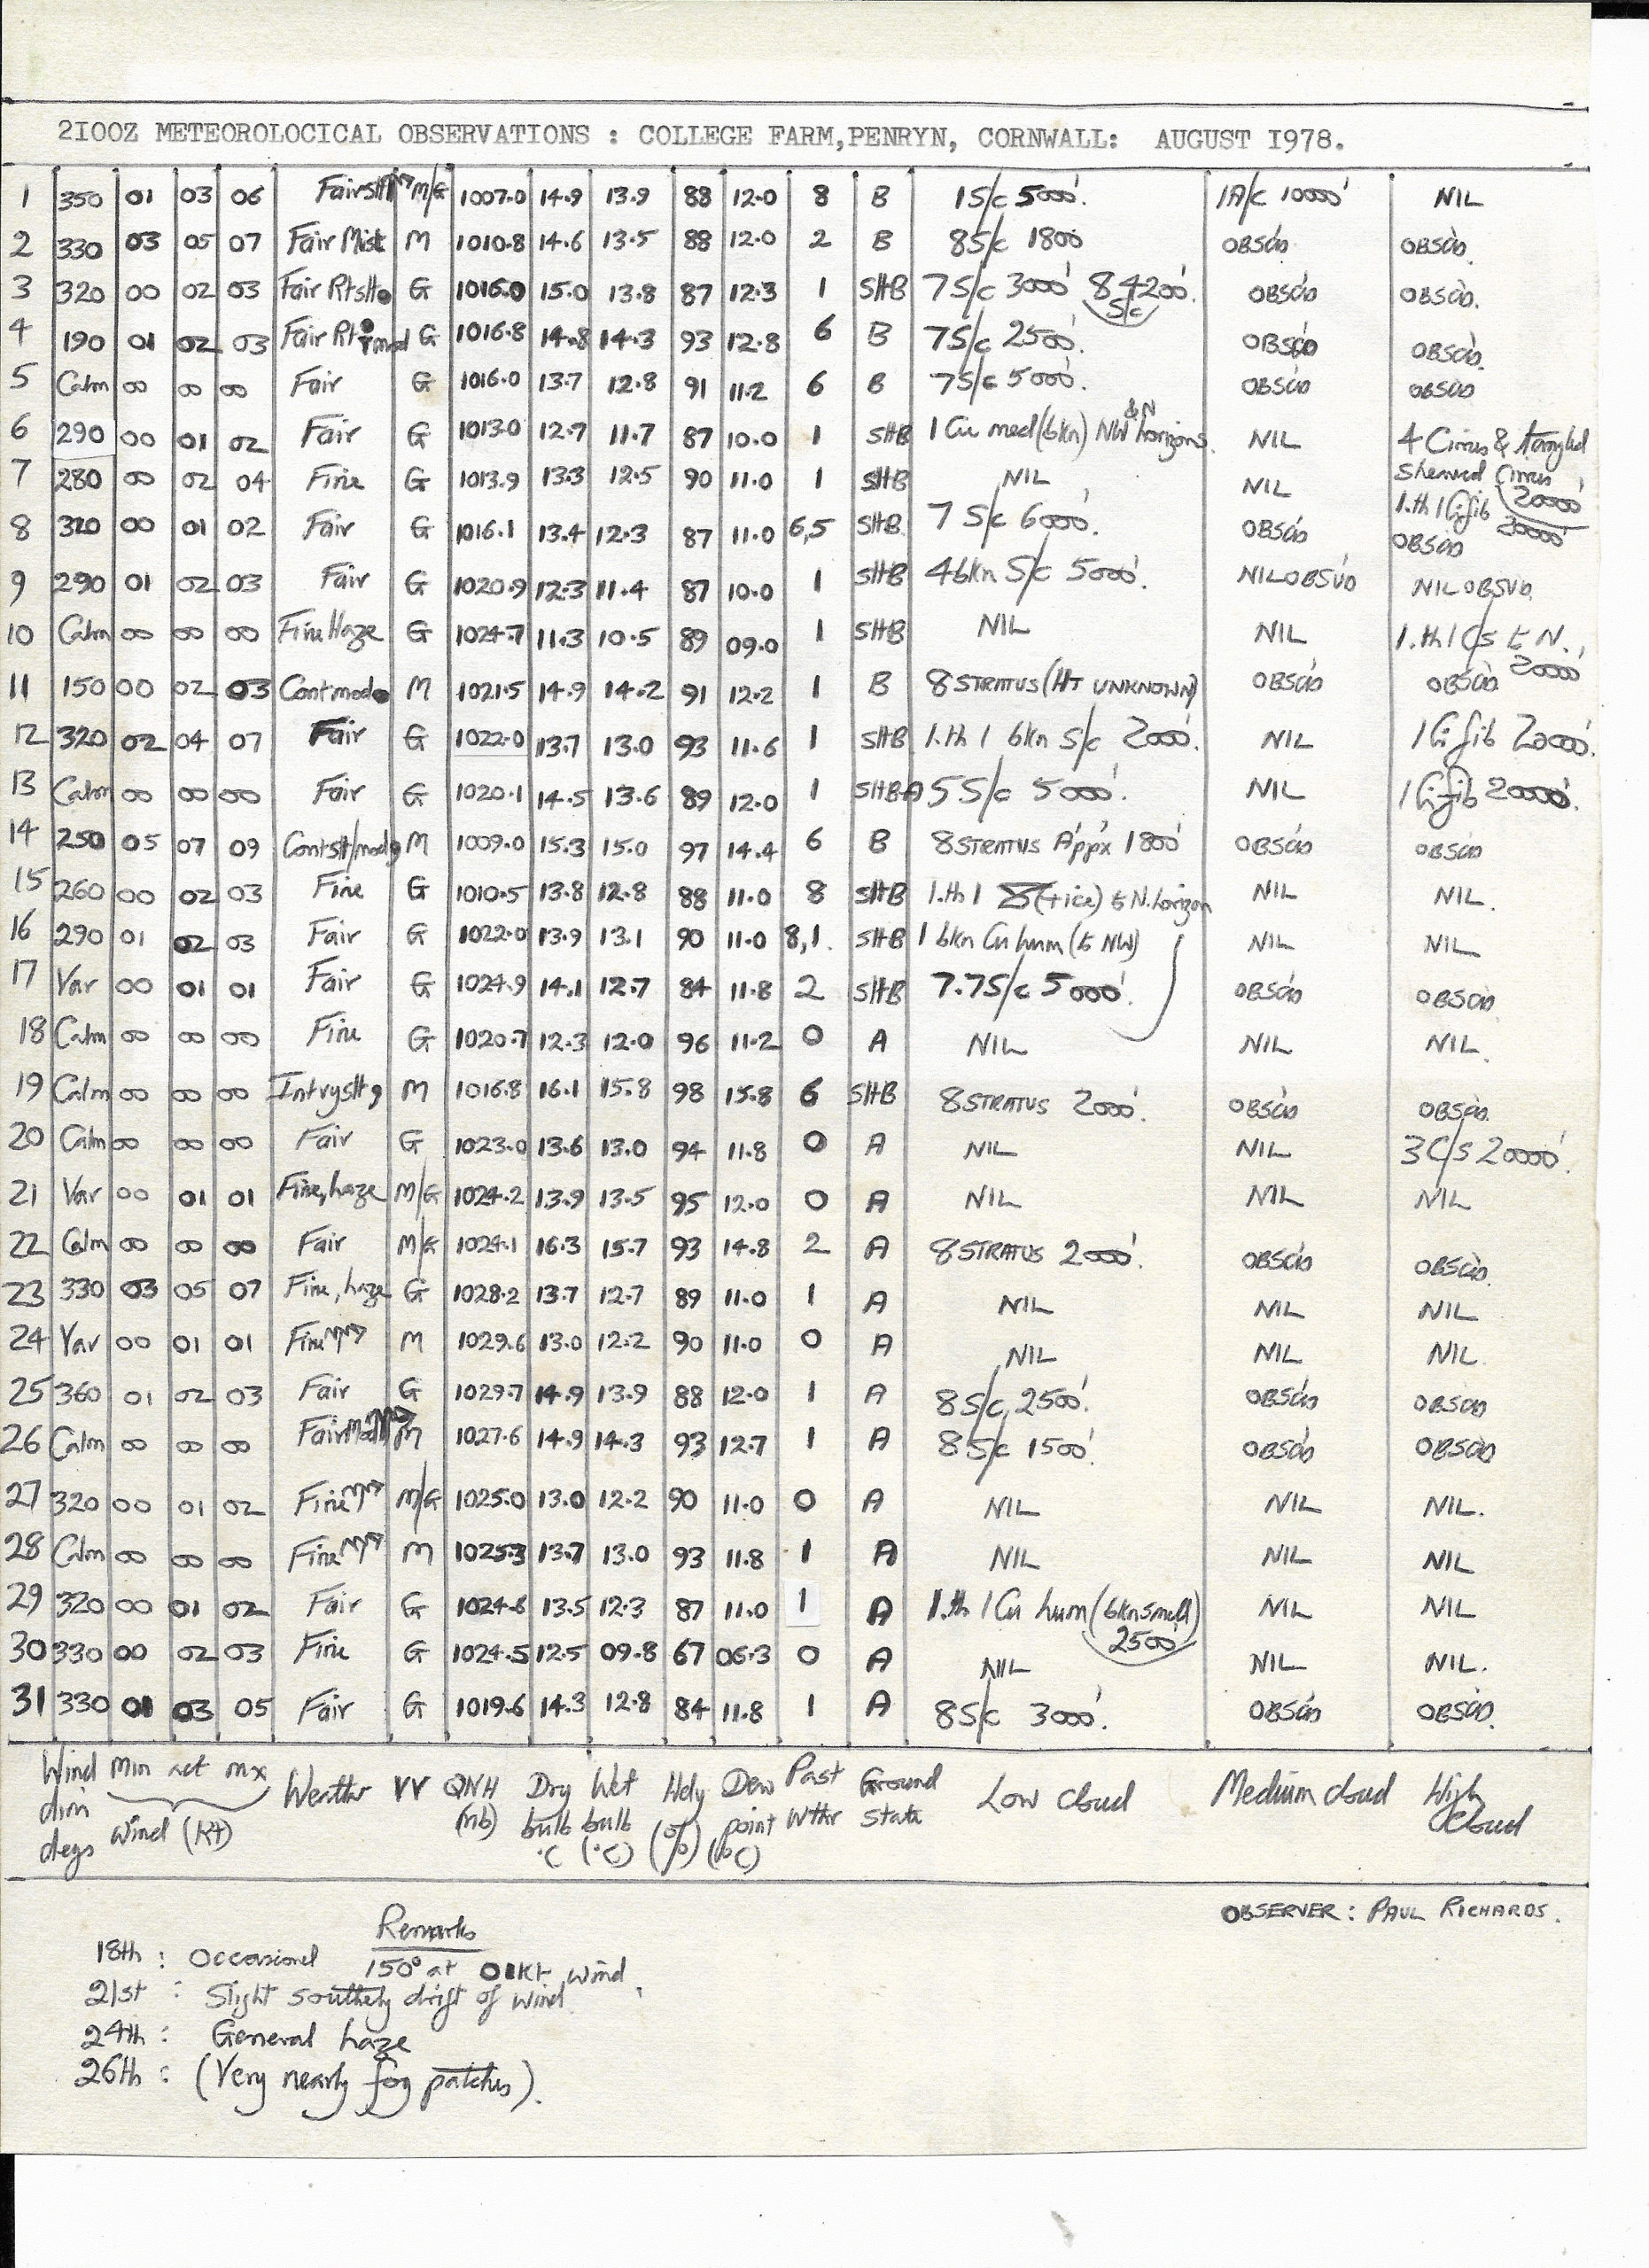 2I00Z METEOROLOCICAL OBSERVATIONS : COLLEGE FARM,PENRYN, CORNWALL: AUGUST I978.
1 350 01 03 06 M/G 1007.0 14.9 13.9 88 12.0 8 B 1S/c 5000' 1A/c 10000' NIL
2 330 03 05 07 Fair Mist M 1010.8 14.6 13.5 88 12.0 2 B 8S/c 1800 OBSCD OBSCD.
3 320 00 02 03 Fair G 1016.0 15.0 13.8 87 12.3 1 SHB 7S/c 3000' 8 4200' S/c OBSCD OBSCD.
4 190 01 02 03 Fair G 1016.8 14.8 14.3 93 12.8 6 B 7S/c 2500' OBSCD OBSCD.
5 Calm 00 00 00 Fair G 1016.0 13.7 12.8 91 11.2 6 B 7S/c 5000' OBSCD OBSCD
6 290 00 01 02 Fair G 1013.0 12.7 11.7 87 10.0 1 SHB 1 Cu med (bkn) NW & N horizons. NIL 4 Cirrus & tangled
7 280 00 02 04 Fine G 1013.9 13.3 12.5 90 11.0 1 SHB NIL NIL Cirrus 20000'
8 320 00 01 02 Fair G 1016.1 13.4 12.3 87 11.0 6,5 SHB 7 S/c 6000' OBSCD OBSCD
9 290 01 02 03 Fair G 1020.9 12.3 11.4 87 10.0 1 SHB 4 bkn S/c 5000' NIL OBSVD NIL OBSVD.
10 Calm 00 00 00 Fine Haze G 1024.7 11.3 10.5 89 09.0 1 SHB NIL NIL 1.th 1 Cs to N., 20000'
11 150 00 02 03 Cont mod M 1021.5 14.9 14.2 91 12.2 1 B 8 STRATUS (HT UNKNOWN) OBSCD OBSCD
12 320 02 04 07 Fair G 1022.0 13.7 13.0 93 11.6 1 SHB 1.th 1 bkn S/c 2000' NIL 1 Ci fib 20000'
13 Calm 00 00 00 Fair G 1020.1 14.5 13.6 89 12.0 1 SHBA 5 S/c 5000' NIL 1 Ci fib 20000'
14 250 05 07 09 Contslt/mod M 1009.0 15.3 15.0 97 14.4 6 B 8 STRATUS A'pp'x 1800' OBSCD OBSCD
15 260 00 02 03 Fine G 1010.5 13.8 12.8 88 11.0 8 SHB 1.th 1 to N. horizon NIL NIL.
16 290 01 02 03 Fair G 1022.0 13.9 13.1 90 11.0 8,1. SHB 1 bkn Cu hum (to NW) NIL NIL
17 Var 00 01 01 Fair G 1024.9 14.1 12.7 84 11.8 2 SHB 7.7S/c 5000' OBSCD OBSCD
18 Calm 00 00 00 Fine G 1020.7 12.3 12.0 96 11.2 0 A NIL NIL NIL.
19 Calm 00 00 00 Intrvyslt M 1016.8 16.1 15.8 98 15.8 6 SHB 8 STRATUS 2000' OBSCD OBSCD.
20 Calm 00 00 00 Fair G 1023.0 13.6 13.0 94 11.8 0 A NIL NIL 3C/s 20000'
21 Var 00 01 01 Fine, haze M/G 1024.2 13.9 13.5 95 12.0 0 A NIL NIL NIL
22 Calm 00 00 00 Fair M/G 1024.1 16.3 15.7 93 14.8 2 A 8 STRATUS 2000' OBSCD OBSCD.
23 330 03 05 07 Fine, haze G 1028.2 13.7 12.7 89 11.0 1 A NIL NIL NIL
24 Var 00 01 01 Fine M 1029.6 13.0 12.2 90 11.0 0 A NIL NIL NIL.
25 360 01 02 03 Fair G 1029.7 14.9 13.9 88 12.0 1 A 8S/c 2500' OBSCD OBSCD
26 Calm 00 00 00 Fair M 1027.6 14.9 14.3 93 12.7 1 A 8S/c 1500' OBSCD OBSCD
27 320 00 01 02 Fine M/G 1025.0 13.0 12.2 90 11.0 0 A NIL NIL NIL.
28 Calm 00 00 00 Fine M 1025.3 13.7 13.0 93 11.8 1 A NIL NIL NIL
29 320 00 01 02 Fair G 1024.6 13.5 12.3 87 11.0 1 A 1.th 1 Cu hum (bkn small) 2500' NIL NIL
30 330 00 02 03 Fine G 1024.5 12.5 09.8 67 06.3 0 A NIL NIL NIL.
31 330 01 03 05 Fair G 1019.6 14.3 12.8 84 11.8 1 A 8S/c 3000' OBSCD OBSCD.
Wind dirn degs Min act mx wind (Kt) Weather VV QNH (mb) Dry bulb °C Wet bulb (°C) Hdy (%) Dew point (°C) Past Wthr Ground state Low cloud Medium cloud High Cloud
OBSERVER : PAUL RICHARDS.
Remarks
18th : Occasional 150° at 01Kt wind.
21st : Slight southerly drift of wind.
24th : General haze
26th : (Very nearly fog patches).